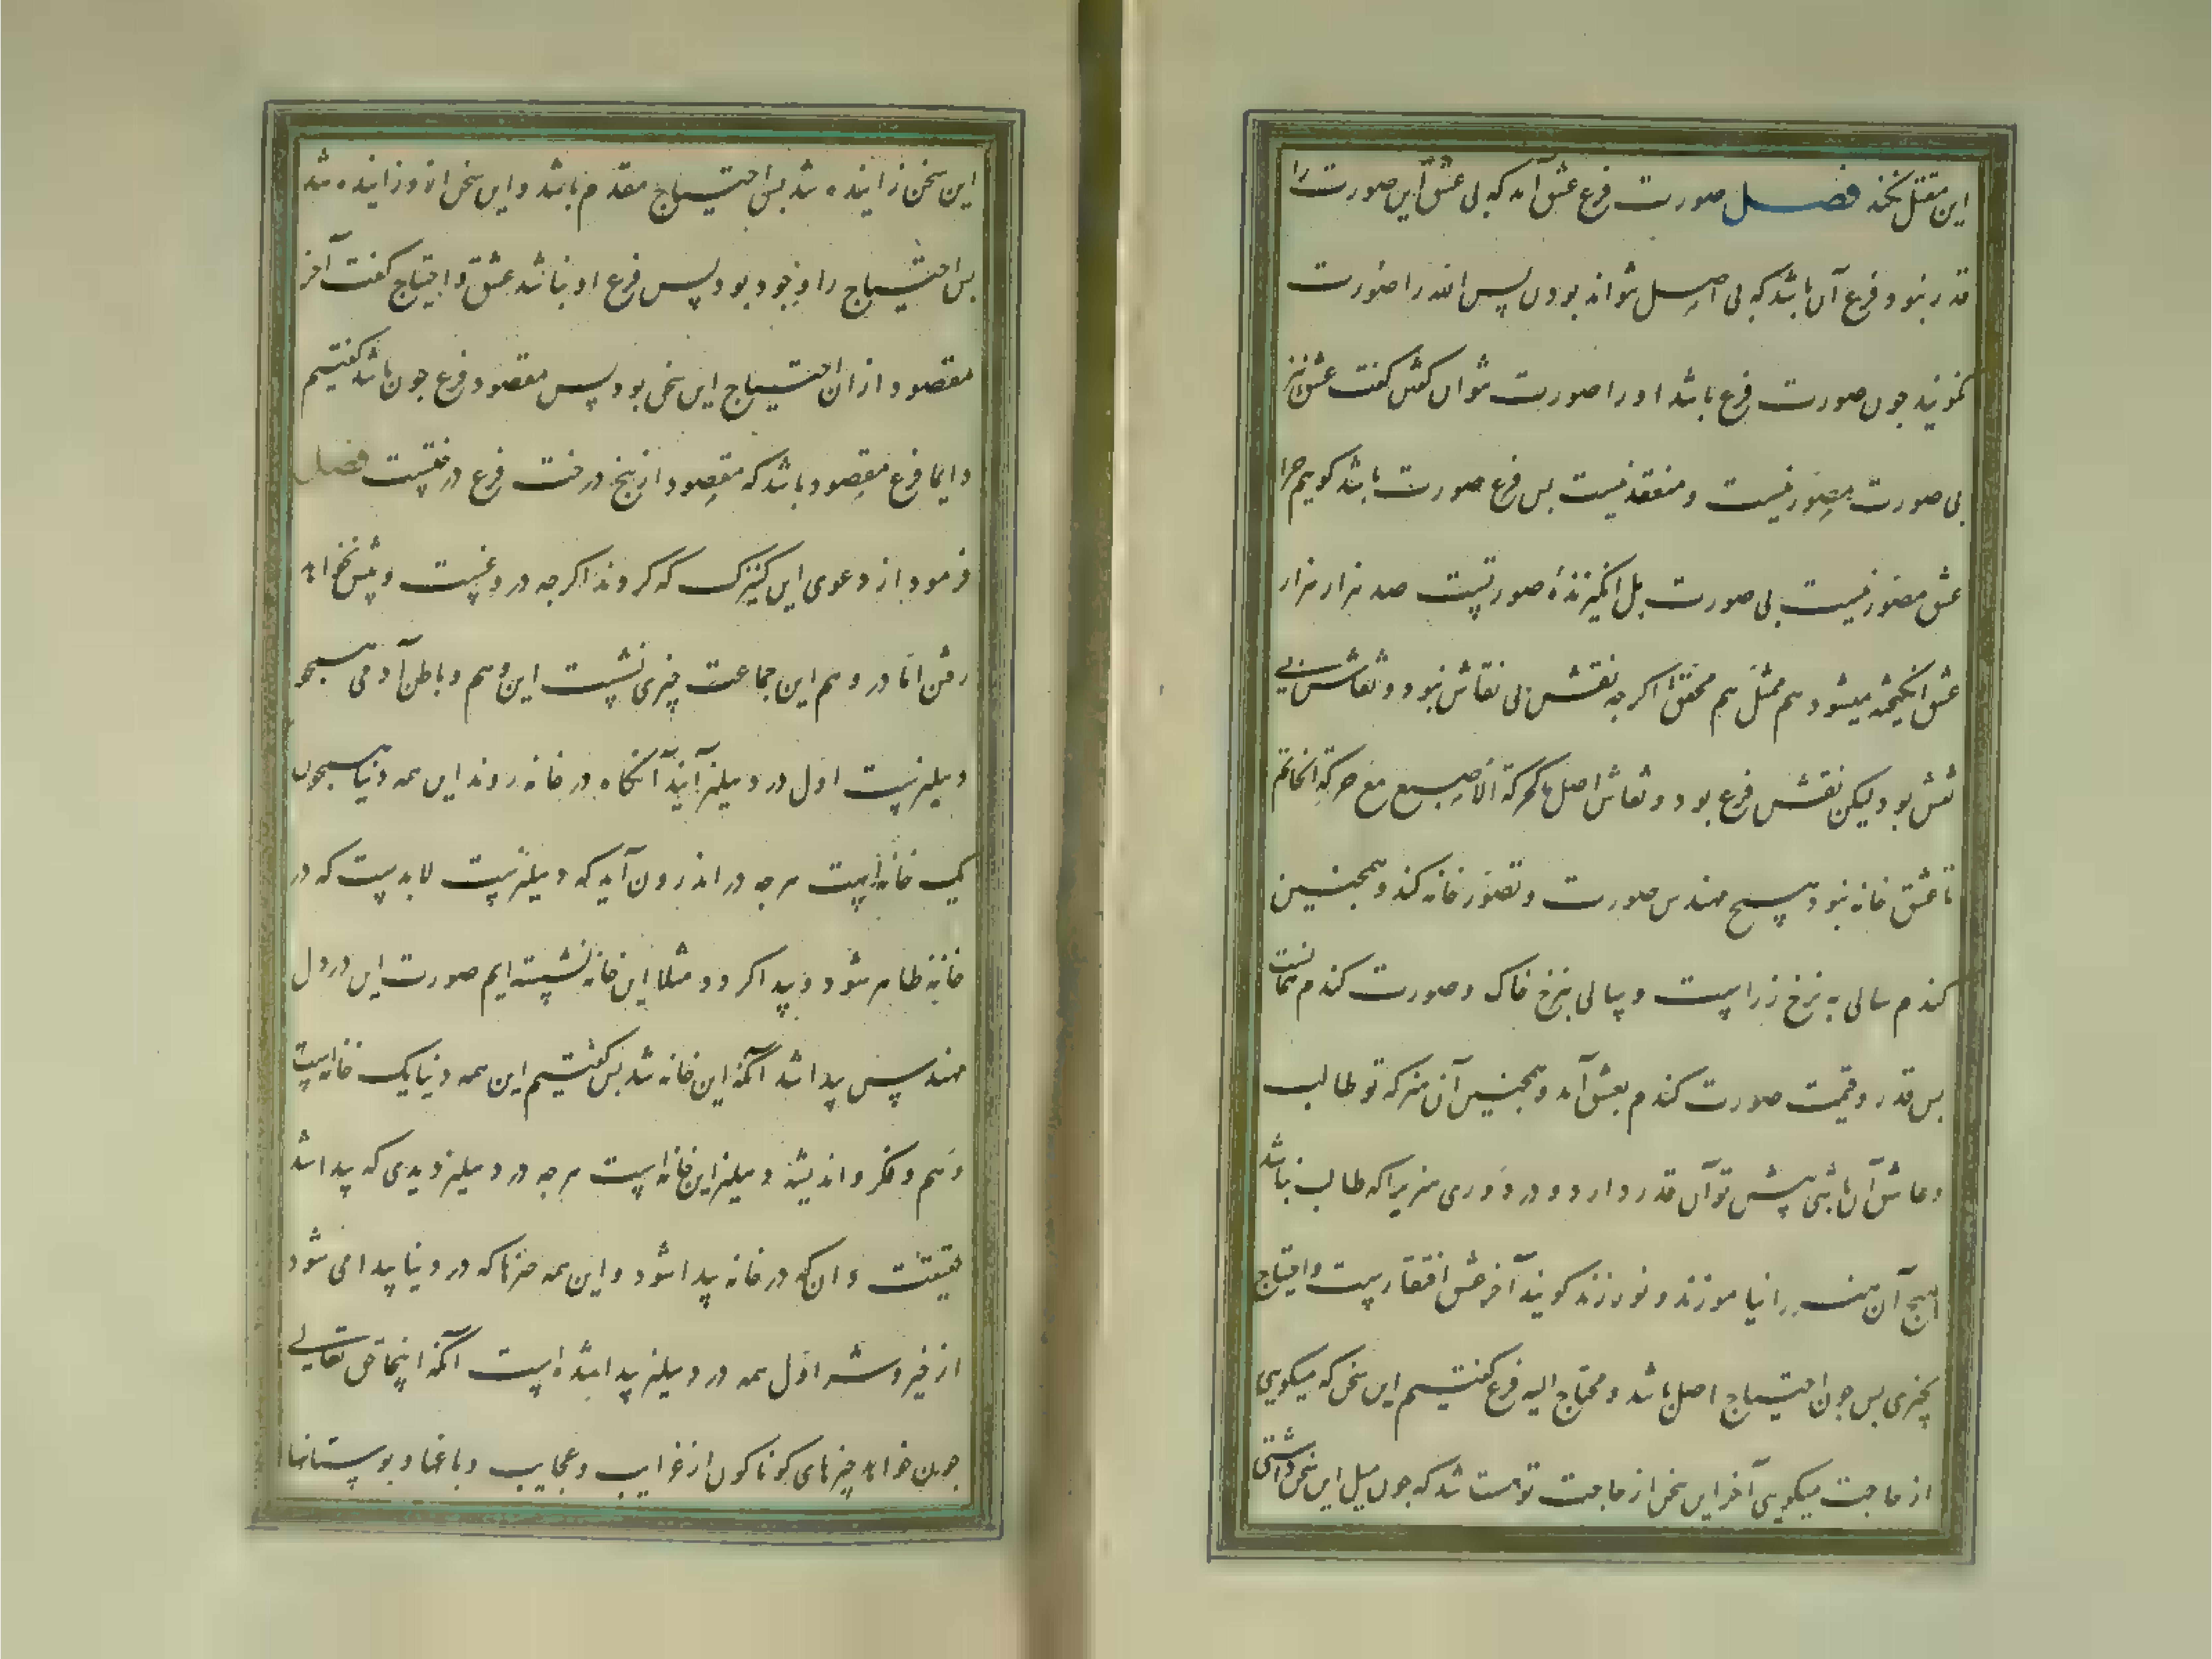 این مقتل نکند فصل صورت فرع عشق آمد که بی عشق این صورت را
قدر نبود فرع آن باشد که بی اصل نتواند بودن پس الله را صورت
نگویند چون صورت فرع باشد او را صورت نتوان گفتن گفت عشق نیز
بی صورت مصور نیست و منعقد نیست پس فرع صورت باشد گوییم چرا
عشق مصور نیست بی صورت بل انگیزندهٔ صورتست صد هزار هزار
عشق انگیخته میشود هم ممثل هم محقق اگرچه نقش بی نقاش نبود و نقاش بی
نقش بود لیکن نقش فرع بود و نقاش اصل کحرکة الاصبع مع حرکة الخاتم
تا عشق خانه نبود هیچ مهندس صورت و تصور خانه کند و همچنین
کندم سالی به نرخ زر است و سالی بنرخ خاک و صورت کندم همانست
پس قدر و قیمت صورت کندم بعشق آمد و همچنین آن هنر که تو طالب
و عاشق آن باشی پیش تو آن قدر دارد و در دوری هنریرا که طالب نباشد
هیچ آن هنر را نیاموزند و نورزند گویند آخر عشق افتقارست و احتیاج
بچیزی پس چون احتیاج اصل باشد و محتاج الیه فرع گفتیم این سخن که میگویی
از حاجت میگویی آخر این سخن از حاجت تو هست شد که چون میل این سخن داشتی
این سخن زاینده شد پس احتیاج مقدم باشد و این سخن ازو زاینده شد
پس احتیاج را وجود بود پس فرع او نباشد عشق و احتیاج گفت آخر
مقصود از ان احتیاج این سخن بود پس مقصود فرع چون باشد گفتیم
دایما فرع مقصود باشد که مقصود از بیخ درخت فرع درختست فصل
فرمود از دعوی این کنیزک که کردند اگرچه دروغست و پیش نخواهد
رفتن اما در وهم این جماعت چیزی نشست این وهم و باطن آدمی همچو
دهلیزست اول در دهلیز آیند آنگاه در خانه روند این همه دنیا همچون
یک خانه است هرچه در اندرون آید که دهلیزست لابدست که در
خانه ظاهر شود و پیدا گردد مثلا این خانه نشسته ایم صورت این در دل
مهندس پیدا شد آنگه این خانه شد پس گفتیم این همه دنیا یک خانه است
وهم و فکر و اندیشه دهلیز این خانه است هرچه در دهلیز دیدی که پیدا شد
حقیقت دان که در خانه پیدا شود و این همه چیزها که در دنیا پیدا می شود
از خیر و شر اول همه در دهلیز پیدا شده است آنگه اینجا حق تعالی
چون خواهد چیزهای گوناگون از غرایب و عجایب و باغها و بوستانها